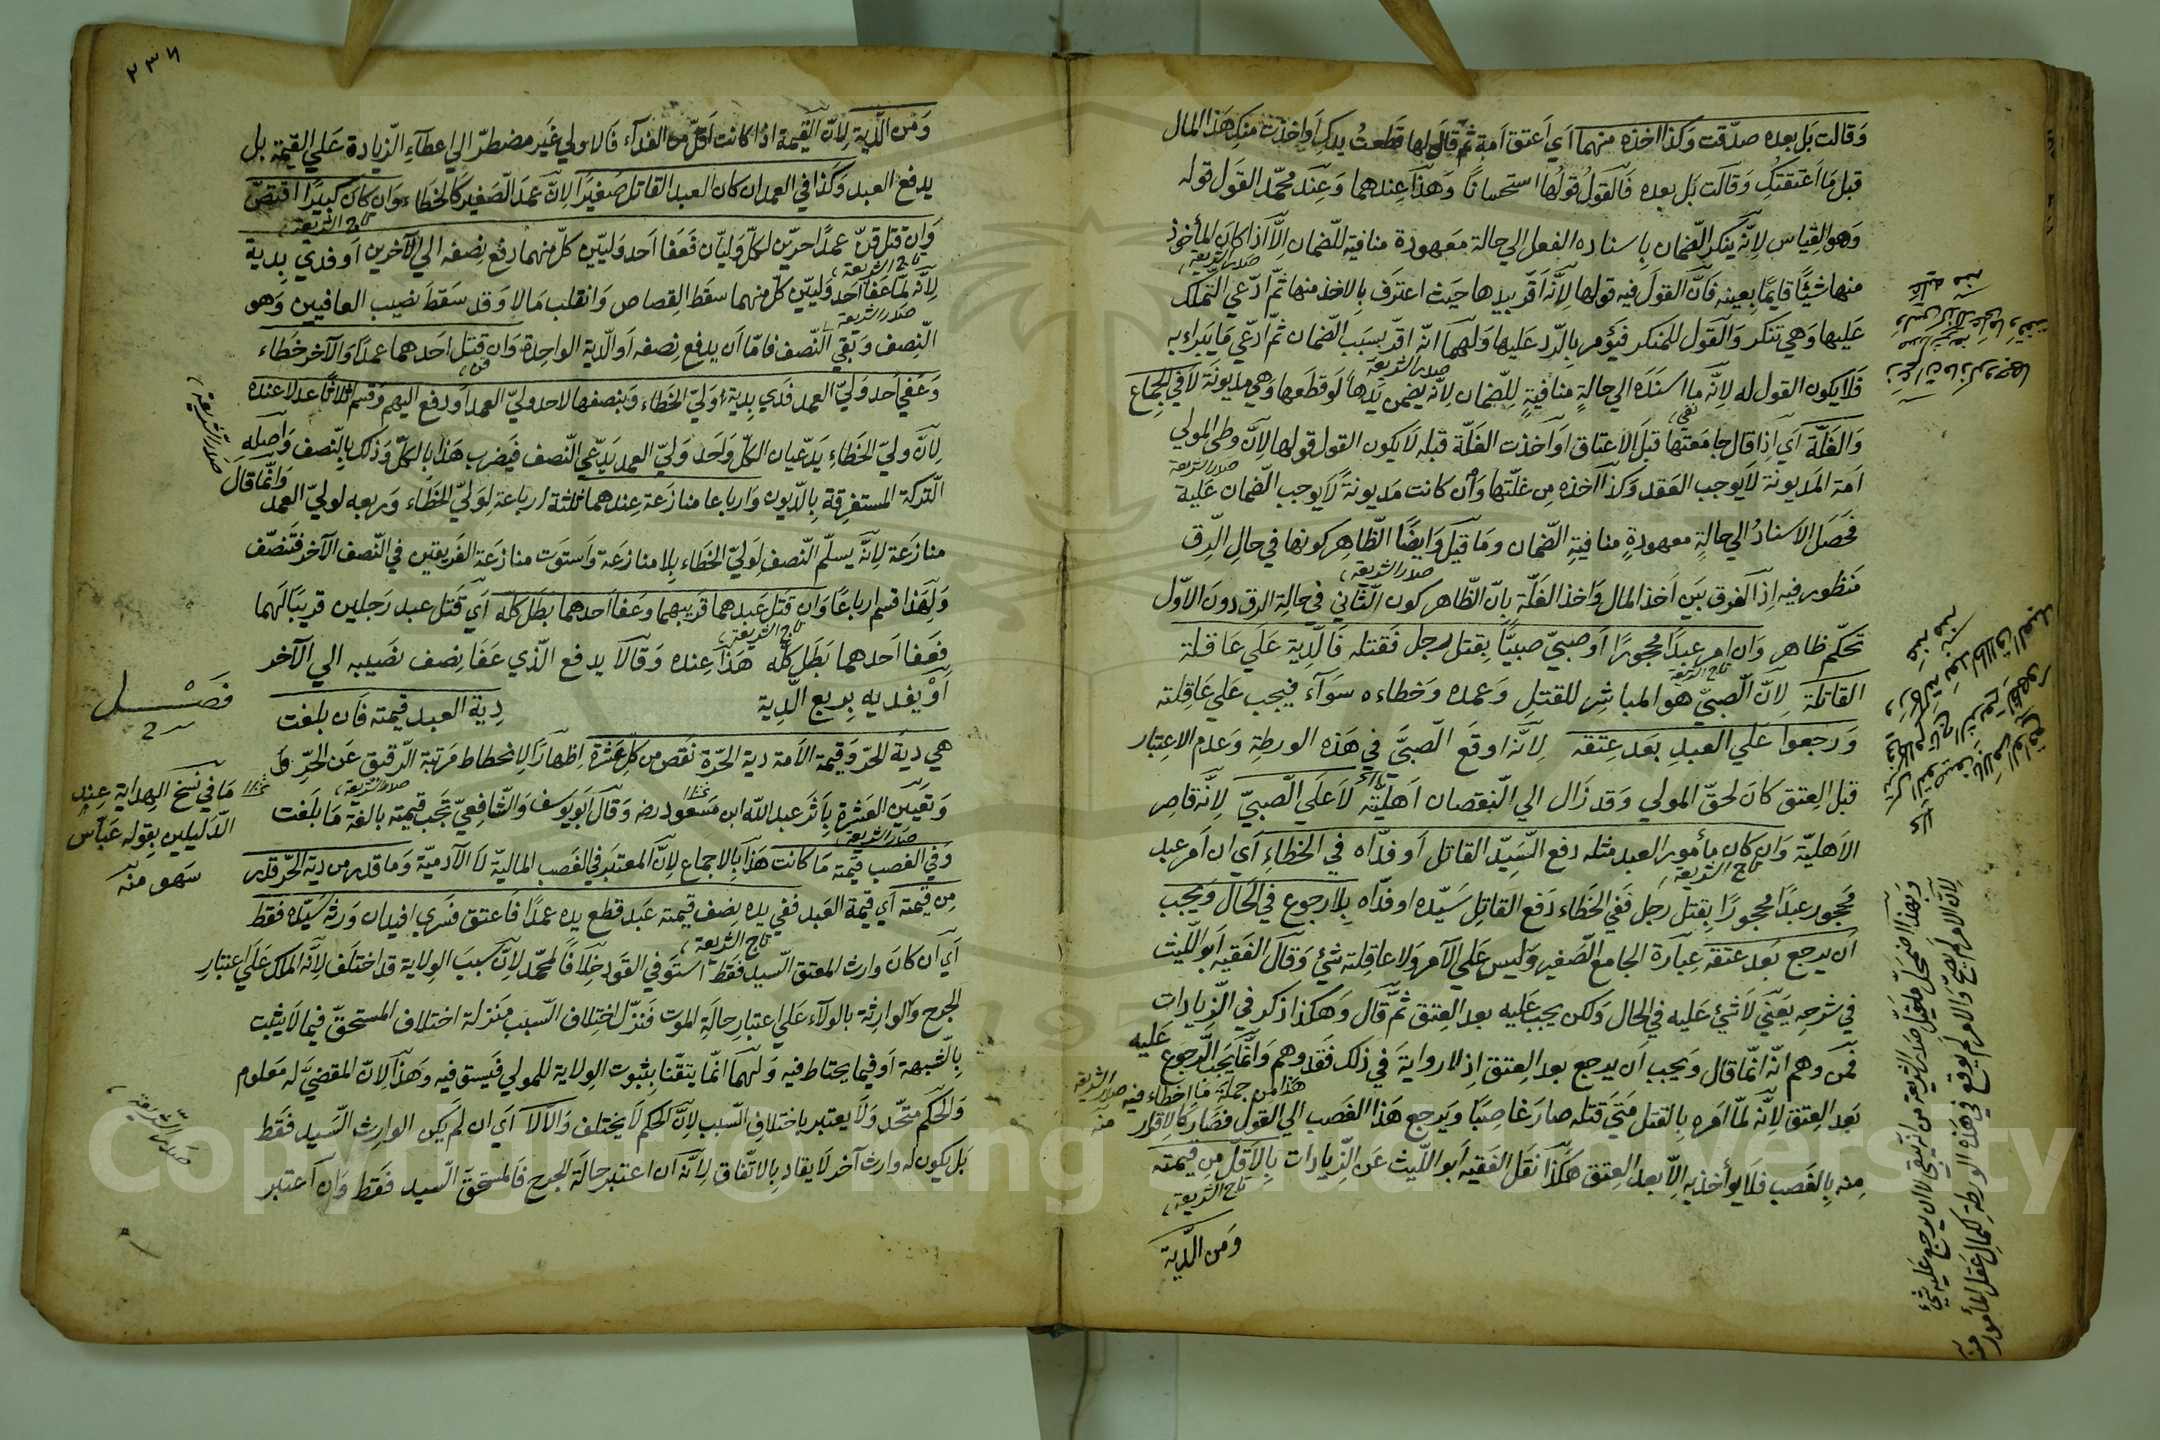 وقالت بل بعده صدّقت وكذا اخذه منهما اي اعتق امة ثم قال لها قطعت يدك او اخذت منك هذا المال
قبل ما اعتقتك وقالت بل بعده فالقول قولها استحسانًا وهذا عندهما وعند محمد القول قوله
وهو القياس لانّه ينكر الضمان باسناده الفعل الي حالة معهودة منافية للضمان الّا اذا كان المأخوذ
صدر الشريعة
منها شيئًا قايمًا بعينه فانّ القول فيه قولها لانّه اقرّ بيدها حيث اعترف بالاخذ منها ثم ادّعي التملك
عليها وهي تنكر والقول للمنكر فيؤمر بالرد عليها ولهما انّه اقرّ بسبب الضمان ثم ادّعي ما يبراء به
صدر الشريعة
فلا يكون القول له لانّه ما اسنده الي حالة منافية للضمان لانّه يضمن يدها لو قطعها وهي مديونة لا في الجماع
والغلّة اي اذا قال جامعتها قبل الاعتاق او اخذت الغلّة قبله لا يكون القول قولها لانّ وطئ المولي
صدر الشريعة
امة المديونة لا يوجب العقد وكذا اخذه من غلّتها وان كانت مديونة لا يوجب الضمان عليه
فحصل الاسناد الي حالة معهودة منافية الضمان وما قيل وايضًا الظاهر كونها في حال الرق
صدر الشريعة
منظور فيه اذ الفرق بين اخذ المال واخذ الغلّة بانّ الظاهر كون الثاني في حالة الرق دون الاوّل
تحكّم ظاهر وان امر عبدًا محجورًا او صبيّ صبيًّا بقتل رجل فقتله فالدية علي عاقلة
تاج الشريعة
القاتلة لانّ الصبيّ هو المباشر للقتل وعمده وخطاءه سواء فيجب علي عاقلته
ورجعوا علي العبد بعد عتقه لانّه اوقع الصبيّ في هذه الورطة وعدم الاعتبار
قبل العتق كان لحقّ المولي وقد زال الي النقصان اهليّته لا علي الصبيّ لانّه قاصر
الاهليّة وان كان مأمور العبد مثله دفع السيّد القاتل او فداه في الخطاء اي ان امر عبد
تاج الشريعة
محجور عبدًا محجورًا بقتل رجل ففي الخطاء دفع القاتل سيّده او فداه بلا رجوع في الحال ويجب
ان يرجع بعد عتقه عبارة الجامع الصغير وليس علي الآمر ولا عاقلته شئ وقال الفقيه ابو الليث
في شرحه يعني لا شئ عليه في الحال ولكن يجب عليه بعد العتق ثمّ قال وهكذا ذكر في الزيادات
فمن وهم انّه انّما قال ويجب ان يرجع بعد العتق اذ لا رواية في ذلك فقد وهم وانّما يجب الرجوع عليه
هذا من جملة ما اخطاء فيه صدر الشريعة منه
بعد العتق لانّه لمّا امره بالقتل متي قتله صار غاصبًا ويرجع هذا الغصب الي القول فصار كالاقرار
منه بالغصب فلا يؤاخذ به الّا بعد العتق هكذا نقل الفقيه ابو الليث عن الزيادات بالاقلّ من قيمته
تاج الشريعة
ومن الدية
وبهذا اضمحل ما تخيل صدر الشريعة من انه ينبغي الا ان يرجع عليه شئ
لانّ الامر لم يصحّ والامر لم يوقع في هذه الورطة لكمال عقل المأمور منه
٢٣٦
ومن الدية لانّ القيمة اذا كانت اقلّ من الفداء فالاولي غير مضطرّ الي اعطاء الزيادة علي القيمة بل
يدفع العبد وكذا في العمد ان كان العبد القاتل صغيرًا لانّ عمد الصغير كالخطاء وان كان كبيرًا اقتصّ
تاج الشريعة
وان قتل قنّ عمدًا حرّين لكلّ وليّان فعفا احد وليّي كلّ منهما دفع نصفه الي الآخرين او فدي بدية
تاج الشريعة
لانّه لمّا عفا احد وليّي كلّ منهما سقط القصاص وانقلب مالا وقد سقط نصيب العافيين وهو
صدر الشريعة
النصف وبقي النصف فامّا ان يدفع نصفه او الدية الواحدة وان قتل احدهما عمدًا والآخر خطاء
وعفي احد وليّ العمد فدي بدية لوليّ الخطاء وبنصفها لاحد وليّ العمد او دفع اليهم وقسم اثلاثًا عدلا عنده
صدر الشريعة
لانّ وليّ الخطاء يدّعيان الكلّ واحد وليّ العمد يدّعي النصف فيضرب هذا بالكلّ وذلك بالنصف واصله
وانّما قال
التركة المستغرقة بالديون وارباعا منازعة عندهما ثلثة ارباعة لوليّ الخطاء وربعه لوليّ العمد
منازعة لانّه يسلّم النصف لوليّ الخطاء بلا منازعة واستوت منازعة الفريقين في النصف الآخر فتنصّف
ولهذا قسم ارباعًا وان قتل عبدهما قريبهما وعفا احدهما بطل كلّه اي قتل عبد رجلين قريبًا لهما
تاج الشريعة
فعفا احدهما بطل كلّه هذا عنده وقالا يدفع الذي عفا نصف نصيبه الي الآخر
او يفديه بربع الدية
فصل
دية العبد قيمته فان بلغت
هي دية الحرّ وقيمة الامة دية الحرّة نقص من كلّ عشرة اظهارًا لانحطاط مرتبة الرقيق عن الحرّ
صدر الشريعة
وتعيين العشرة باثر عبد الله ابن مسعود رضه وقال ابو يوسف والشافعيّ تجب قيمته بالغة ما بلغت
ما في نسخ الهداية عند
الدليلين بقوله عباس
سهو منه
صدر الشريعة
وفي الغصب قيمة ما كانت هذا بالاجماع لانّ المعتبر في الغصب الماليّة لا الآدميّة وما قدر من دية الحرّ قدر
من قيمته اي قيمة العبد ففي يده نصف قيمة عبد قطع يده عمدًا فاعتق فسري اقيد ان ورثه سيّده فقط
تاج الشريعة
اي ان كان وارث المعتق السيد فقط استوفي القود خلافًا لمحمّد لانّ سبب الولاية قد اختلف لانّه الملك علي اعتبار
الجرح والوراثة بالولاء علي اعتبار حالة الموت فنزّل اختلاف السبب منزلة اختلاف المستحقّ فيما لا يثبت
بالشبهة او فيما يحتاط فيه ولهما انّما يتقّنا بثبوت الولاية للمولي فيستوفيه وهذا لانّ المقضيّ له معلوم
صدر الشريعة
والحكم متّحد ولا يعتبر باختلاف السبب لانّ الحكم لا يختلف والّا لا اي ان لم يكن الوارث السيد فقط
بل يكون له وارث آخر لا يقاد بالاتّفاق لانّه ان اعتبر حالة الجرح فالمستحقّ السيد فقط وان اعتبر
Copyright © King Saud University